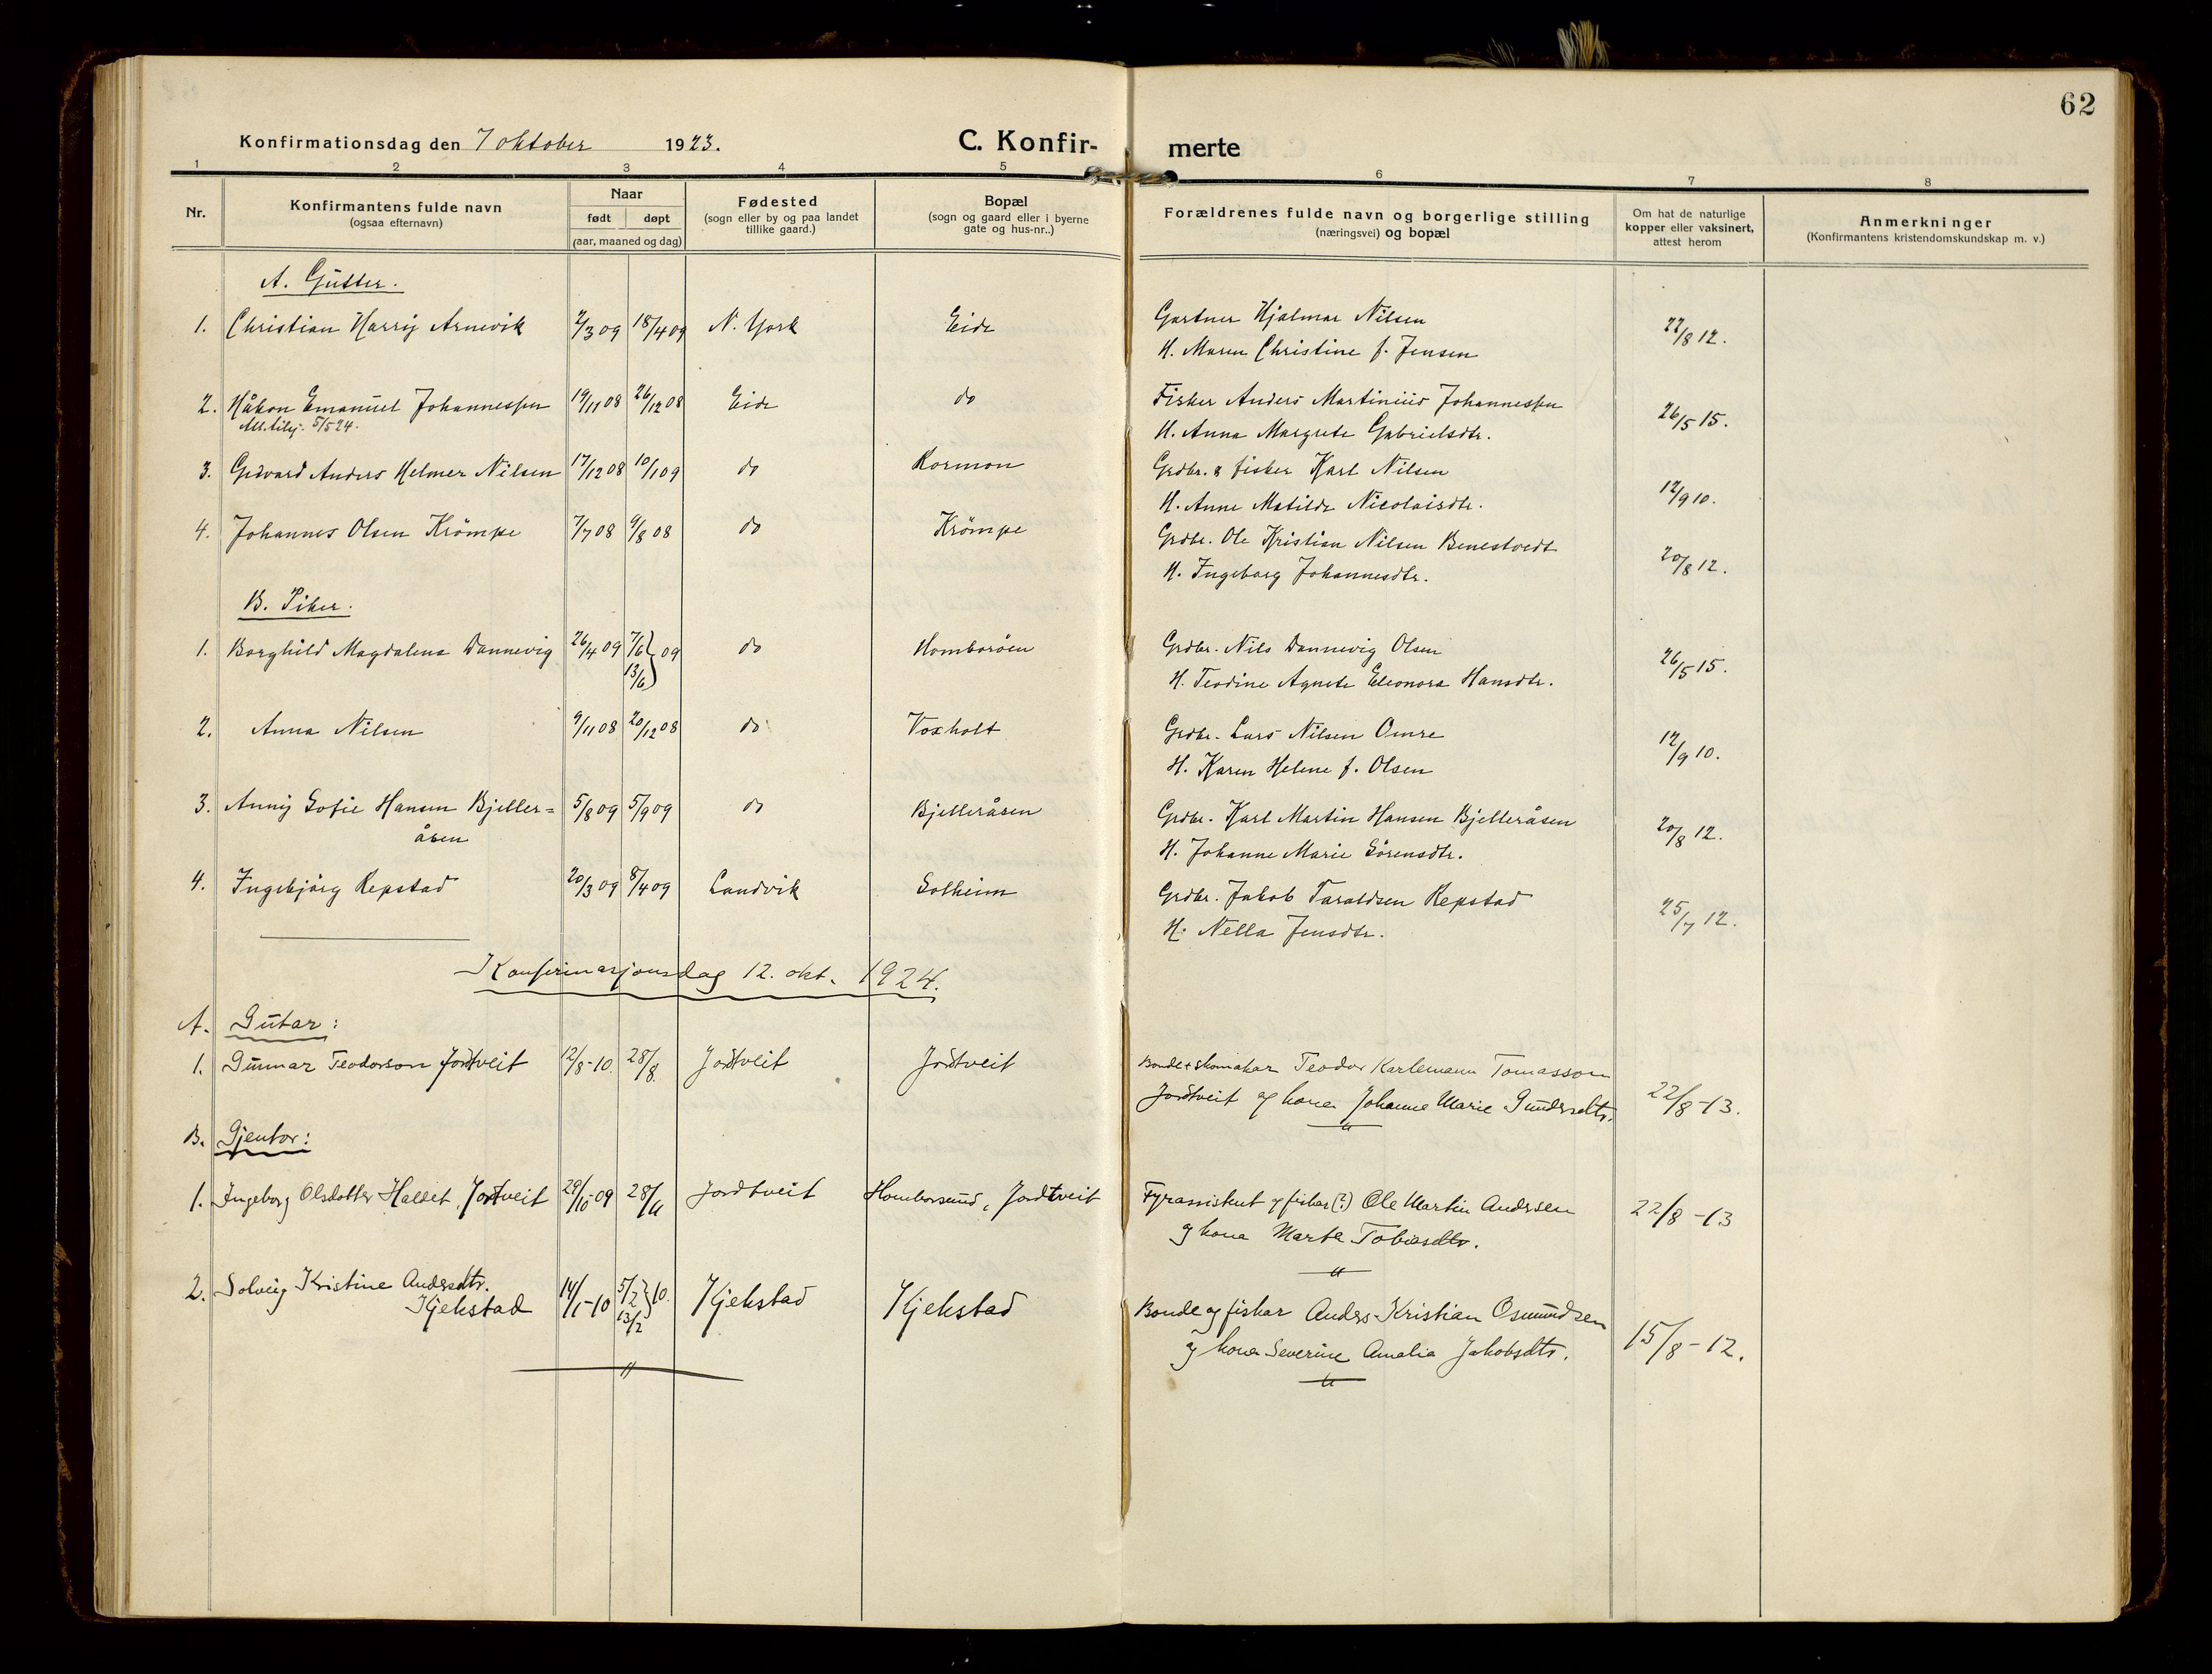 62
Konfirmationsdag den 7 oktober 1923.
C. Konfir-
merte
1 2 3 4 5 6 7 8
Nr.
Konfirmantens fulde navn
(ogsaa efternavn)
Naar
født døpt
(aar, maaned og dag)
Fødested
(sogn eller by og paa landet
tillike gaard.)
Bopæl
(sogn og gaard eller i byerne
gate og hus-nr..)
Forældrenes fulde navn og borgerlige stilling
(næringsvei) og bopæl
Om hat de naturlige
kopper eller vaksinert,
attest herom
Anmerkninger
(Konfirmantens kristendomskundskap m. v.)
A. Gutter.
1. Christian Harry Arnevik 2/3 09 18/4 09 N. York Eide Gartner Hjalmar Nilsen 22/8 12.
H. Maren Christine f. Jensen
2. Håkon Emanuel Johannessen 19/11 08 26/12 08 Eide do Fisker Anders Martinius Johannessen 26/5 15.
5/5 24. H. Anna Margrete Gabrielsdtr.
3. Gedvard Anders Helmer Nilsen 17/12 08 10/1 09 do Kormon Grdbr. & fisker Karl Nilsen 12/9 10.
H. Anne Matilde Nicolaisdtr.
4. Johannes Olsen Krömpe 7/7 08 9/8 08 do Krömpe Grdbr. Ole Kristian Nilsen Benestvedt 20/8 12.
H. Ingeborg Johannesdtr.
B. Piker.
1. Borghild Magdalena Dannevig 26/4 09 7/6 } 09 do Homboröen Grdbr. Nils Dannevig Olsen 26/5 15.
13/6 H. Teodine Agnete Eleonora Hansdtr.
2. Anna Nilsen 9/11 08 20/12 08 do Voxholt Grdbr. Lars Nilsen Omre 12/9 10.
H. Karen Helene f. Olsen
3. Anny Sofie Hansen Bjeller= 5/8 09 5/9 09 do Bjelleråsen Grdbr. Karl Martin Hansen Bjelleråsen 20/8 12.
åsen H. Johanne Marie Sörensdtr.
4. Ingebjörg Repstad 20/3 09 8/4 09 Landvik Solheim Grdbr. Jakob Taraldsen Repstad 25/7 12.
H. Nella Jensdtr.
Konfirmasjonsdag 12. okt. 1924.
A. Gutar:
1. Gunnar Teodorson Jortveit 12/8-10. 28/8. Jortveit Jortveit Bonde + skomakar Teodor Karlemann Tomasson 22/8-13.
Jortveit og kona Johanne Marie Gundersdtr.
B. Gjentor:
1. Ingeborg Olsdotter Hallet, Jortveit 29/10-09 28/11 Jordtveit Homborsund, Jordtveit Fyrassistent og fiskar (?) Ole Martin Andersen 22/8-13
og kona Marte Tobiasdtr.
2. Solveig Kristine Andersdtr. 14/1-10 5/2 } 10. Kjekstad Kjekstad Bonde og fiskar Anders Kristian Osmundsen 15/8-12.
Kjekstad 13/2 og kona Severine Amalia Jakobsdtr.